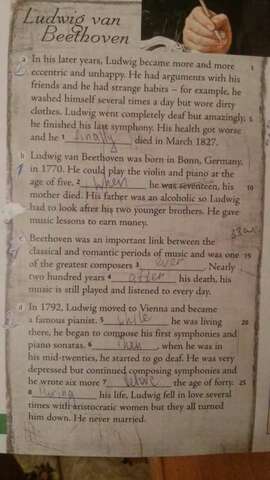 Ludwig van
Beethoven
a In his later years, Ludwig became more and more 1
eccentric and unhappy. He had arguments with his
friends and he had strange habits – for example, he
washed himself several times a day but wore dirty
clothes. Ludwig went completely deaf but amazingly, 5
he finished his last symphony. His health got worse
and he 1 finally died in March 1827.
b Ludwig van Beethoven was born in Bonn, Germany,
in 1770. He could play the violin and piano at the
age of five. 2 When he was seventeen, his 10
mother died. His father was an alcoholic so Ludwig
had to look after his two younger brothers. He gave
music lessons to earn money.
Beethoven was an important link between the
classical and romantic periods of music and was one 15
of the greatest composers 3 ever. Nearly
two hundred years 4 after his death, his
music is still played and listened to every day.
d In 1792, Ludwig moved to Vienna and became
a famous pianist. 5 while he was living 20
there, he began to compose his first symphonies and
piano sonatas. 6 then, when he was in
his mid-twenties, he started to go deaf. He was very
depressed but continued composing symphonies and
he wrote six more 7 before the age of forty. 25
8 during his life, Ludwig fell in love several
times with aristocratic women but they all turned
him down. He never married.